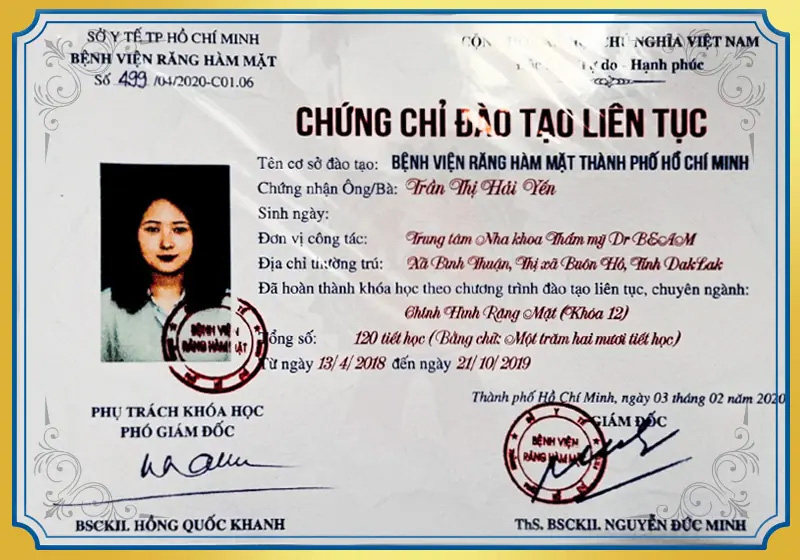 SỞ Y TẾ TP HỒ CHÍ MINH
BỆNH VIỆN RĂNG HÀM MẶT
Số 499 /04/2020-C01.06
CỘN CHỦ NGHĨA VIỆT NAM
do - Hạnh phúc
CHỨNG CHỈ ĐÀO TẠO LIÊN TỤC
Tên cơ sở đào tạo: BỆNH VIỆN RĂNG HÀM MẶT THÀNH PHỐ HỒ CHÍ MINH
Chứng nhận Ông/Bà: Trần Thị Hải Yến
Sinh ngày:
Đơn vị công tác: Trung tâm Nha khoa Thẩm mỹ Dr BEAM
Địa chỉ thường trú: Xã Bình Thuận, Thị xã Buôn Hồ, Tỉnh DakLak
Đã hoàn thành khóa học theo chương trình đào tạo liên tục, chuyên ngành:
Chỉnh Hình Răng Mặt (Khóa 12)
Tổng số: 120 tiết học (Bằng chữ: Một trăm hai mươi tiết học)
Từ ngày 13/4/2018 đến ngày 21/10/2019
BỆNH VIỆN
RĂNG HÀM MẶT
Thành phố Hồ Chí Minh, ngày 03 tháng 02 năm 2020
PHỤ TRÁCH KHÓA HỌC
PHÓ GIÁM ĐỐC
GIÁM ĐỐC
Y TẾ
BỆNH VIỆN
RĂNG HÀM MẶT
BSCKII. HỒNG QUỐC KHANH
ThS. BSCKII. NGUYỄN ĐỨC MINH